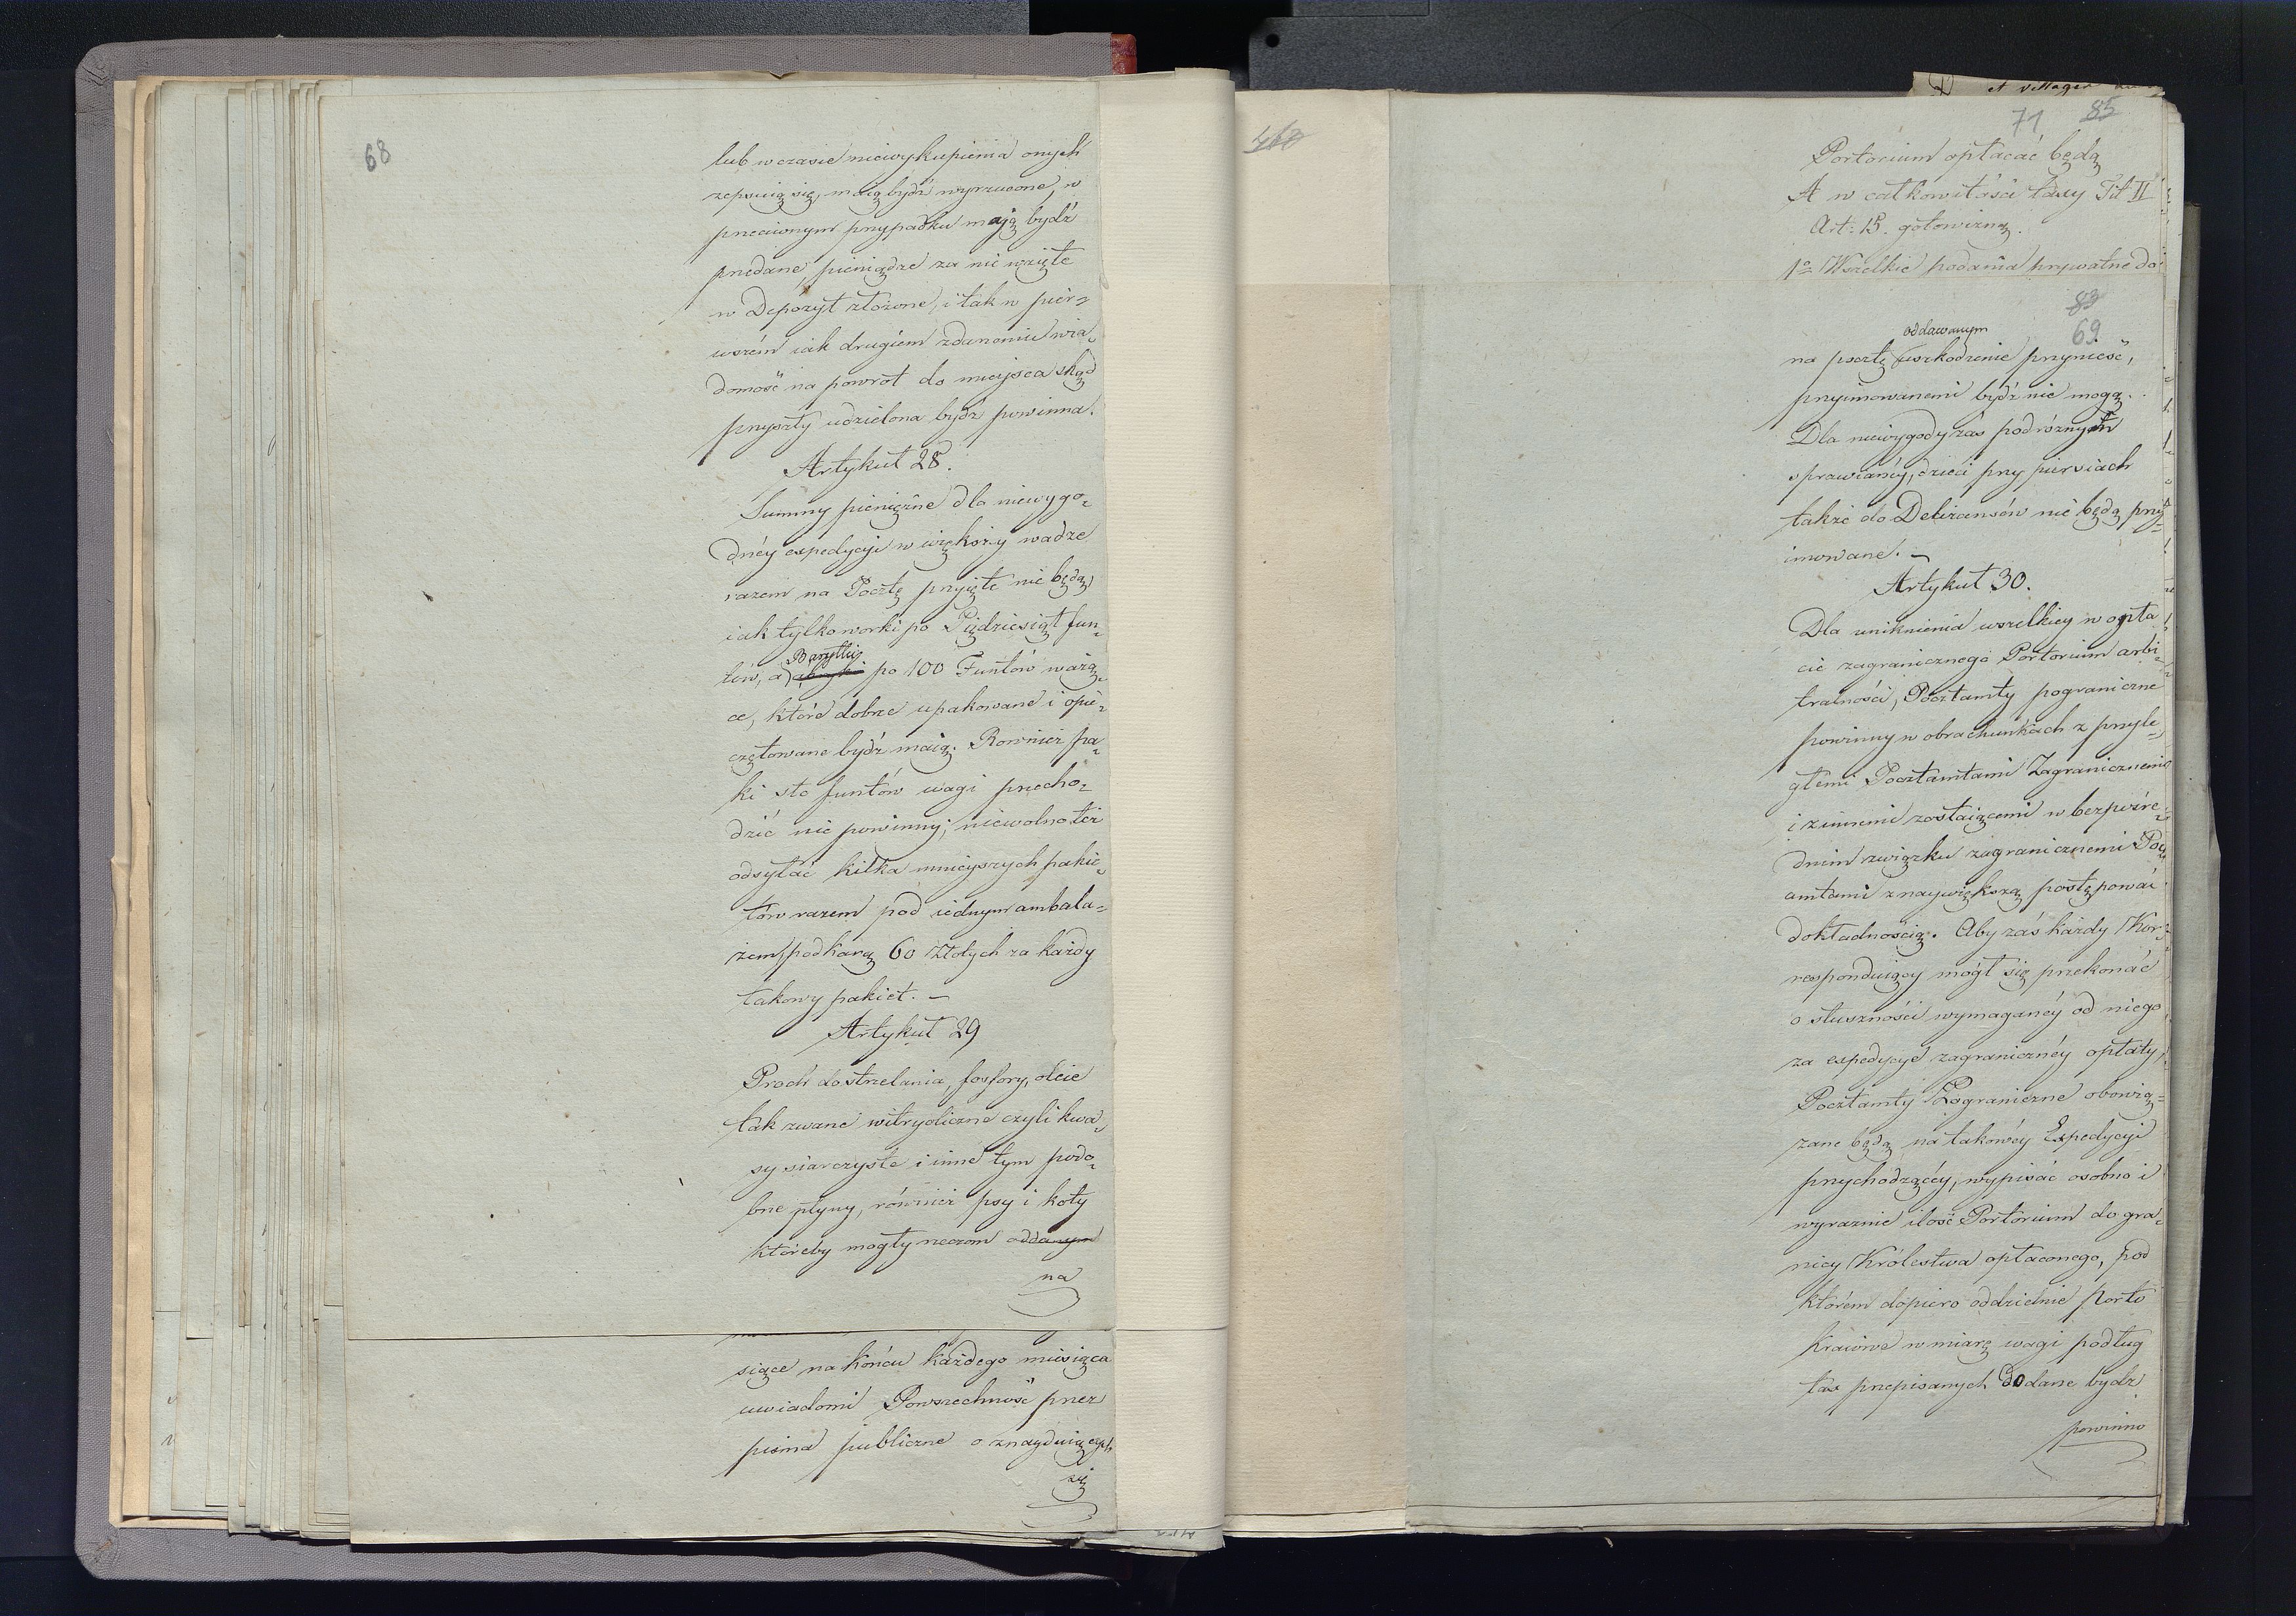 68
lub w czasie niewykupienia onych
zepsuią się, maią bydź wyrzucone, w
przeciwnym przypadku mają bydź
przedane, pieniądze za nie wzięte
w Depozyt złożone, i tak w pier=
wszém iak drugiém zdarzeniu wia=
domość na powrót do mieysca skąd
przyszły udzielona bydź powinna.
Artykuł 28.
Summy pieniężne dla niewygo=
dnéy expedycyi w większey wadze
razem na Pocztę przyięte nie będą,
iak tylko worki po Piędziesiąt fun=
Baryłki
tów, a po 100 Funtów ważą=
ce, które dobrze upakowane i opie=
czętowane bydź maią. Rownież pa=
ki sto funtów wagi przecho=
dzić nie powinny; niewolno też
odsyłać kilka mnieyszych pakie=
tów razem pod iednym ambala=
żem pod karą 60 Złotych za każdy
takowy pakiet. —
Artykuł 29
Proch do strzelania, fosfory, oleie
tak zwane witryoliczne czyli kwa=
sy siarczyste i inne tym podo=
bne płyny, również psy i koty
któreby mogły rzeczom oddanym
na
siące na końcu każdego miesiąca
uwiadomi Powszechność przez
pisma publiczne o znayduiących
się
et villages
71 85
Portorium opłacać będą
A w całkowitości taxy Tit II
Art: 15. gotowizną.
1º Wszelkie podania prywatne do
83
69
oddawanym
na pocztę uszkodzenie przynieść,
przyimowanemi bydź nie mogą.
Dla niewygody zaś podróżnym
sprawianéy, dzieci przy piersiach
także do Deliżansów nie będą przy=
imowane. —
Artykuł 30.
Dla uniknienia wszelkiey w opła
cie zagranicznego Portorium arbi=
tralności, Pocztamty pograniczne
powinny w obrachunkach z przyle=
głemi Pocztamtami Zagranicznemi
i z innemi zostaiącemi w bezpośre=
dnim związku zagranicznemi Pocz
amtami z naywiększą postępować
dokładnością. Aby zaś każdy Kor=
responduiący mógł się przekonać
o słuszności wymaganéy od niego
za expedycye zagranicznéy opłaty,
Pocztamty Zagraniczne obowią=
zane będą na takowéy Expedycyi
przychodzącéy, wypisać osobno i
wyraznie ilość Portorium do gra=
nicy Królestwa opłaconego, pod
którém dopiero oddzielnie Porto
kraiowe w miarę wagi podług
tax przepisanych dodane bydź
powinno